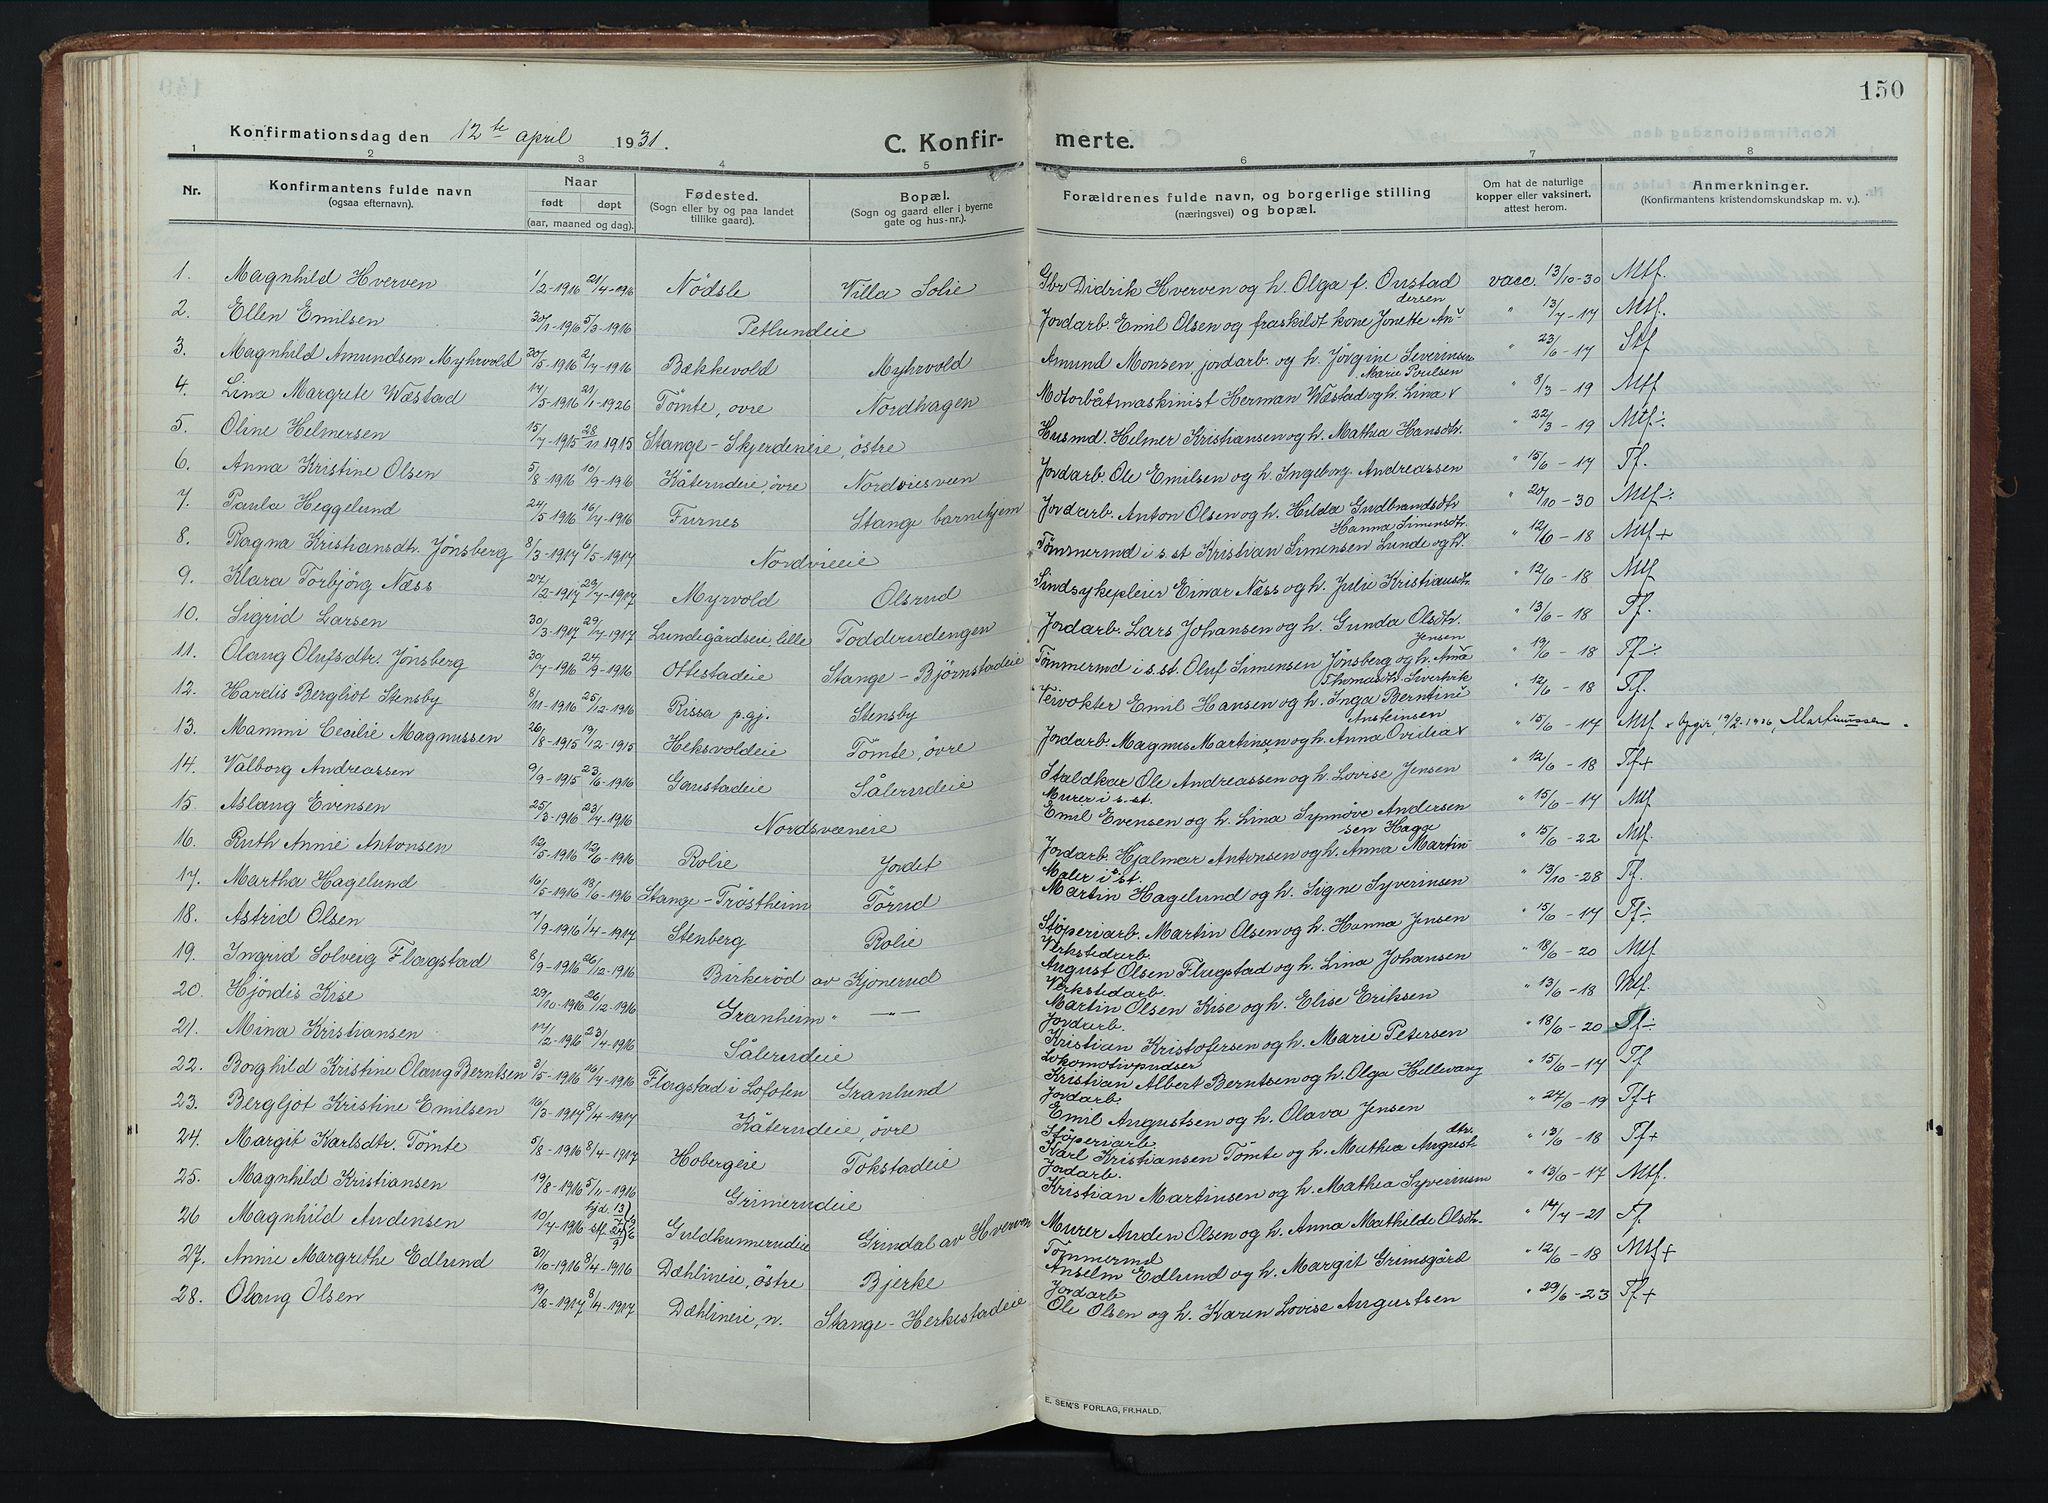 150
Konfirmationsdag den 12te april 1931.
C. Konfir- merte.
1 2 3 4 5 6 7 8
Nr. Konfirmantens fulde navn (ogsaa efternavn). Naar født døpt (aar, maaned og dag). Fødested. (Sogn eller by og paa landet tillike gaard). Bopæl. (Sogn og gaard eller i byerne gate og hus-nr.). Forældrenes fulde navn, og borgerlige stilling (næringsvei) og bopæl. Om hat de naturlige kopper eller vaksinert, attest herom. Anmerkninger. (Konfirmantens kristendomskundskap m. v.).
1. Magnhild Hverven 1/2-1916 21/4-1916 Nödsle Villa Solie Gbr Didrik Hverven og h. Olga f. Onstad vacc. 13/10-30 Mtf.
2. Ellen Emilsen 30/1-1916 5/3-1916 Petlundeie Jordarb. Emil Olsen og fraskildt kone Jonette An- dersen " 13/7-17 Mtf.
3. Magnhild Amundsen Myhrvold 20/5-1916 2/7-1916 Bækkevold Myhrvold Amund Monsen, jordarb. og h. Jörgine Severinsen " 23/6-17 Stf
4. Lina Margrete Wæstad 17/5-1916 21/1-1926 Tömte, övre Nordhagen Motorbåtmaskinist Herman Wæstad og h. Lina x Marie Poulsen " 8/3-19 Mtf
5. Oline Helmersen 15/7-1915 28/11 1915 Stange-Skjerdeneie, östre Husmd. Helmer Kristiansen og h. Mathea Hansdtr. " 22/3-19 Mtf÷
6. Anna Kristine Olsen 5/8-1916 10/9-1916 Kåterudeie, övre Nordviesveen Jordarb. Ole Emilsen og h. Ingeborg Andreassen " 15/6-17 Tf.
7. Paula Heggelund 24/5-1916 16/7-1916 Furnes Stange barnehjem Jordarb. Anton Olsen og h. Hilda Gudbrandsdtr " 20/10-30 Mtf÷
8. Ragna Kristiansdtr. Jönsberg 8/3-1917 6/5-1917 Nordvieeie Tömmermd i s.st Kristian Simensen Lunde og h. Hanna Simensdtr. " 12/6-18 Mtf+
9. Klara Torbjörg Næss 27/2-1917 29/7-1917 Myrvold Olsrud Sindsykepleier Einar Næss og h. Julie Kristiansdtr. " 12/6-18 Mtf
10. Sigrid Larsen 30/3-1917 29/7-1917 Lundegårdseie, lille Todderudengen Jordarb. Lars Johansen og h. Gunda Olsdtr. " 13/6-18 Tf.
11. Olaug Olufsdtr. Jönsberg 30/7-1916 24/9-1916 Ottestadeie Stange-Björnstadeie Tömmermd i s.st. Oluf Simensen Jönsberg og h. Anna Jensen " 19/6-18 Tf÷
12. Hardis Bergliot Stensby 8/11-1916 25/12-1916 Rissa p.gj. Stensby Veivokter Emil Hansen og h. Inga Berntine Thomasdtr. " 12/6-18 Tf.
13. Mammi Cecilie Magnussen 26/8-1915 19/12-1915 Heksvoldeie Tömte, övre Jordarb. Magnus Martinsen og h. Anna Ovidia x Ansteinsen " 15/6-17 Mtf.
14. Valborg Andreassen 9/9-1915 23/6-1916 Gaustadeie Sålerudeie Staldkar Ole Andreassen og h. Lovise Jensen " 12/6-18 Tf+
15. Aslaug Evensen 25/3-1916 23/7-1916 Nordsveneie Murer i s.st. Emil Evensen og h. Lina Synnöve Andersen " 15/6-17 Mtf
16. Ruth Annie Antonsen 12/5-1916 12/6-1916 Rolie Jordet Jordarb. Hjalmar Antonsen og h. Anna Martin- sen Haga " 15/6-22 Mtf.
17. Martha Hagelund 16/5-1916 18/6-1916 Stange-Tröstheim Törud Maler i st. Martin Hagelund og h. Signe Syverinsen " 13/10-28 Tf.
18. Astrid Olsen 7/9-1916 1/4-1917 Stenberg Rolie Stöperiarb. Martin Olsen og h. Hanna Jensen " 15/6-17 Tf÷
19. Ingrid Solveig Flagstad 8/9-1916 26/12-1916 Birkeröd av Kjonerud Verkstedarb. August Olsen Flagstad og h. Lina Johansen " 18/6-20 Mtf.
20. Hjördis Kise 29/10-1916 26/12-1916 Granheim " —"— Verkstedarb. Martin Olsen Kise og h. Elise Eriksen " 13/6-18 Mtf.
21. Mina Kristiansen 17/2-1916 23/4-1916 Sålerudeie Jordarb. Kristian Kristofersen og h. Marie Petersen " 18/6-20 Tf÷
22. Borghild Kristine Olaug Berntsen 3/5-1916 16/7-1916 Flagstad i Lofoten Granlund Lokomotivpudser Kristian Albert Berntsen og h. Olga Hellevang " 15/6-17 Tf
23. Bergljot Kristine Emilsen 16/3-1917 8/4-1917 Kåterudeie, övre Jordarb. Emil Augustsen og h. Olava Jensen " 27/6-19 Tf+
24. Margit Karlsdtr. Tömte 5/8-1916 8/4-1917 Hobergeie Tokstadeie Stöperiarb. Karl Kristiansen Tömte og h. Mathea August- dtr. " 13/6-18 Tf+
25. Magnhild Kristiansen 19/8-1916 5/11-1916 Grimerudeie Jordarb. Kristian Martinsen og h. Mathea Syverinsen " 13/6-17 Mtf.
26 Magnhild Andensen 10/7-1916 Guldkunnerudeie Grindal av Hverven Murer Anden Olsen og h. Anna Mathilde Olsdtr. " 14/7-21 Tf.
27. Annie Margrethe Edlund 30/10-1916 8/4-1916 Dæhlineie, östre Bjerke Tömmermd Anselm Edlund og h. Margit Grimsgård " 12/6-18 Mtf+
28. Olaug Olsen 19/2-1917 8/4-1917 Dæhlineie, n. Stange-Herkestadeie Jordarb Ole Olsen og h. Karen Lovise Augustsen " 29/6-23 Tf+
E. SEM'S FORLAG, FR.HALD.